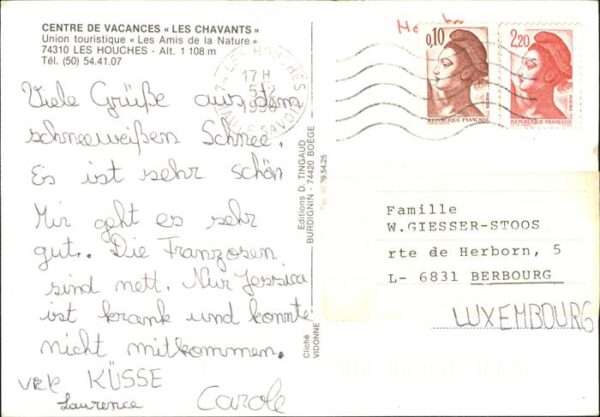 CENTRE DE VACANCES « LES CHAVANTS »
Union touristique « Les Amis de la Nature »
74310 LES HOUCHES - Alt. 1 108 m
Tél. (50) 54.41.07
Viele Grüße aus dem
schneeweißen Schnee.
Es ist sehr schön
Mir geht es sehr
gut.. Die Franzosen
sind nett. Nur Jessica
ist krank und konnte
nicht mitkommen.
KÜSSE
Laurence Carole
LES HOUCHES
17 H
HAUTE SAVOIE
Editions D. TINGAUD
BURDIGNIN - 74420 BOËGE
Cliché
VIDONNE
0,10
REPUBLIQUE FRANÇAISE
2,20
REPUBLIQUE FRANÇAISE
Famille
W.GIESSER-STOOS
rte de Herborn, 5
L- 6831 BERBOURG
LUXEMBOURG